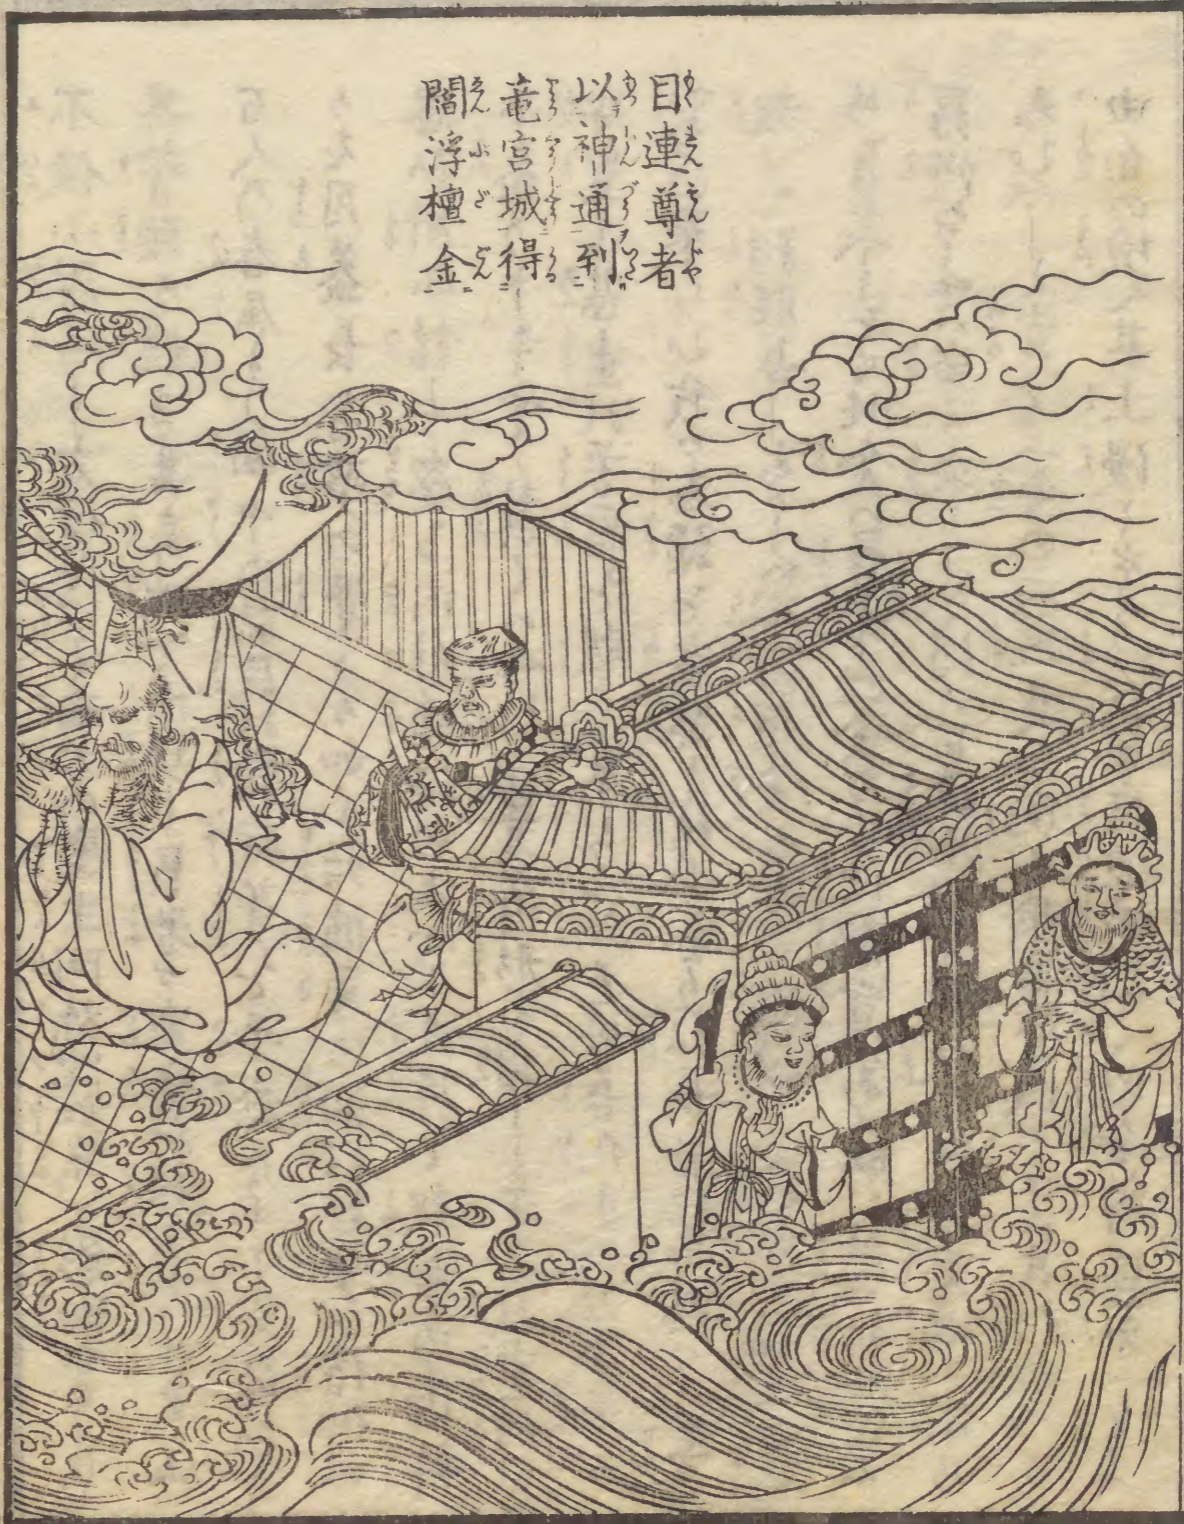 目連尊者
以神通到
竜宮城得
閻浮檀金